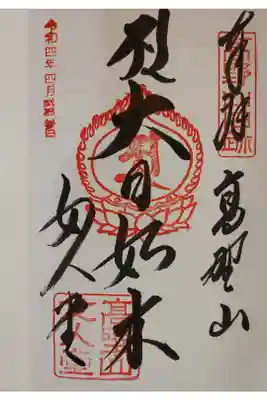 奉拝
高野山
大日如来
女人堂
高野山
女人堂
令和四年四月